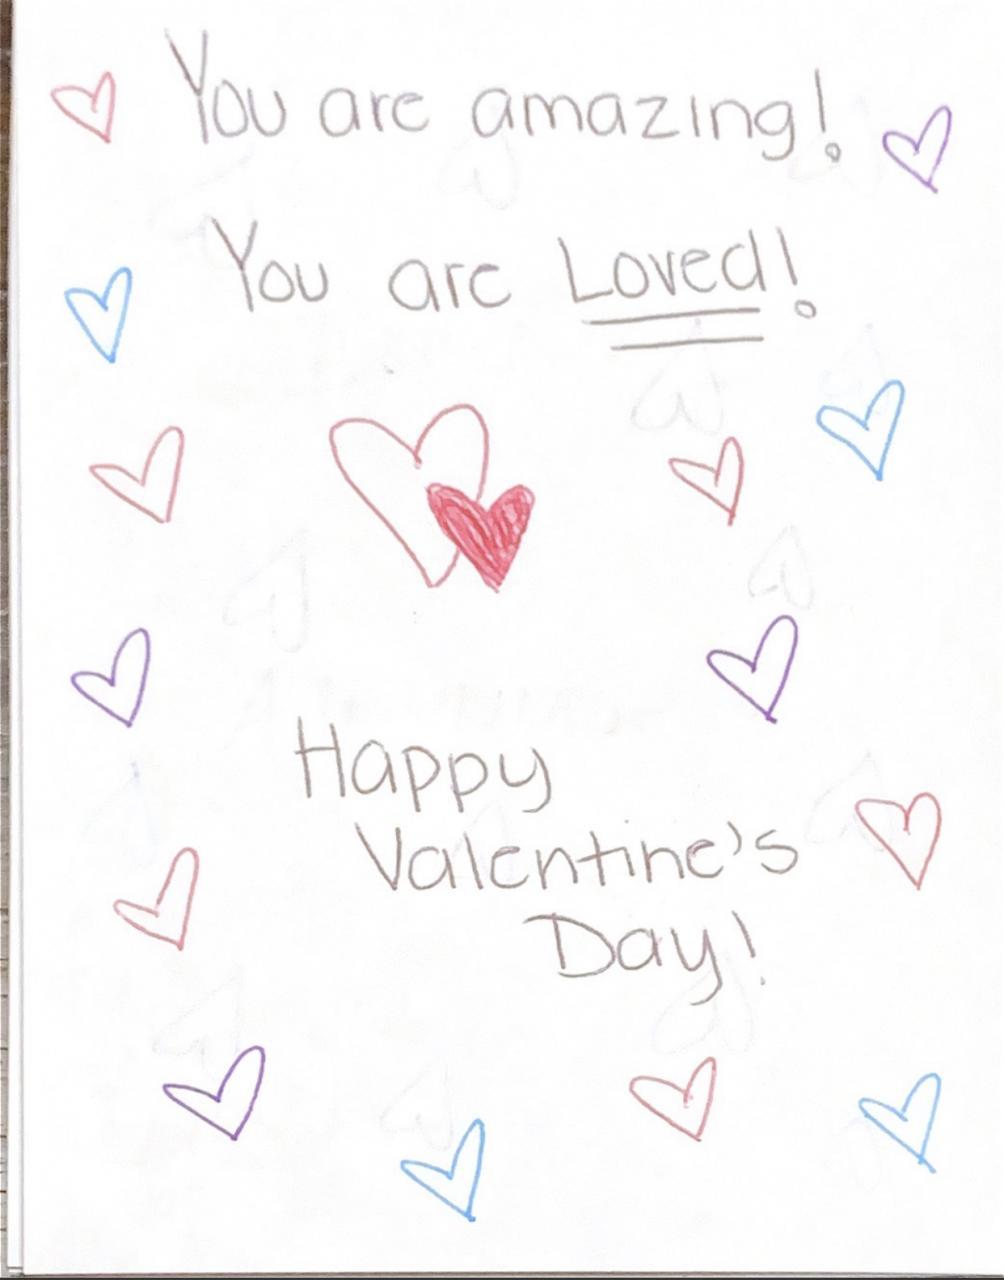 You are amazing!
You are Loved!
Happy
Valentine's
Day!